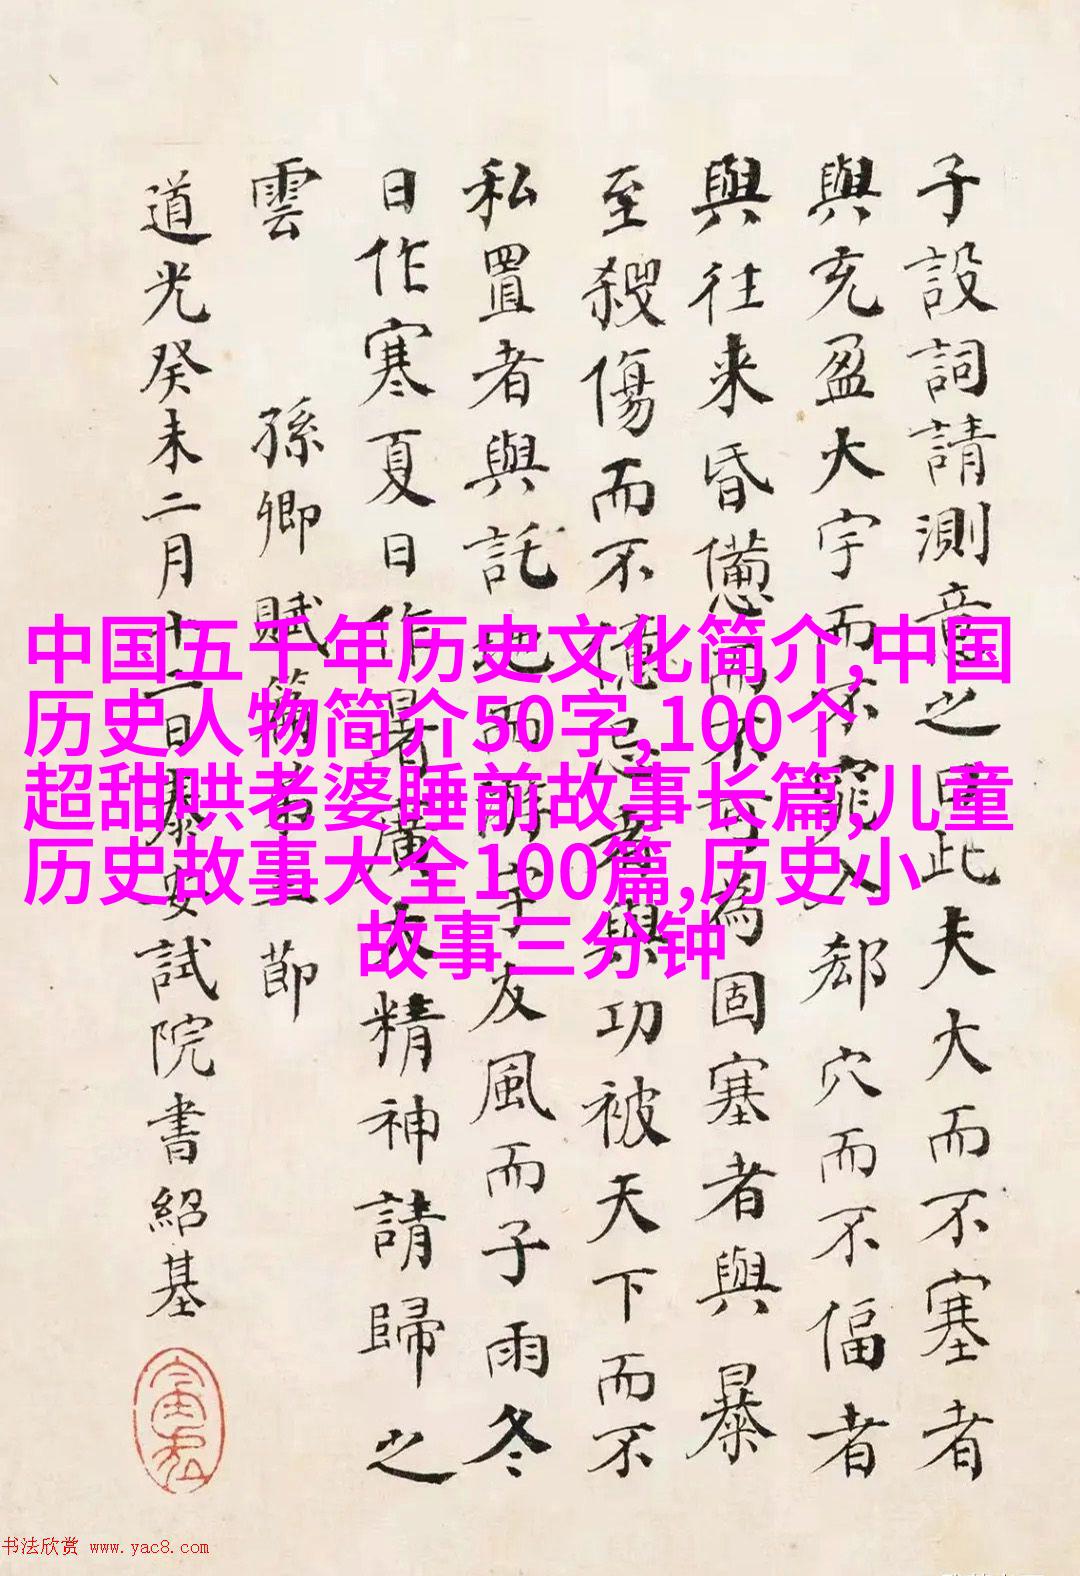 子設詞請測意之曰此夫大而不塞者
與充盈大宇而不窕入郄穴而不偪者
與往来昏憊而不可為固塞者與暴
至殺傷而不億忌者與功被天下而不
私置者與託地而游宇友風而子雨冬
日作寒夏日作暑廣大精神請歸之
雲 孫卿賦篇 節
道光癸未二月十二日泰安試院書紹基
中国五千年历史文化简介,中国
历史人物简介50字,100个
超甜哄老婆睡前故事长篇,儿童
历史故事大全100篇,历史小
故事三分钟
书法欣赏 www.yac8.com